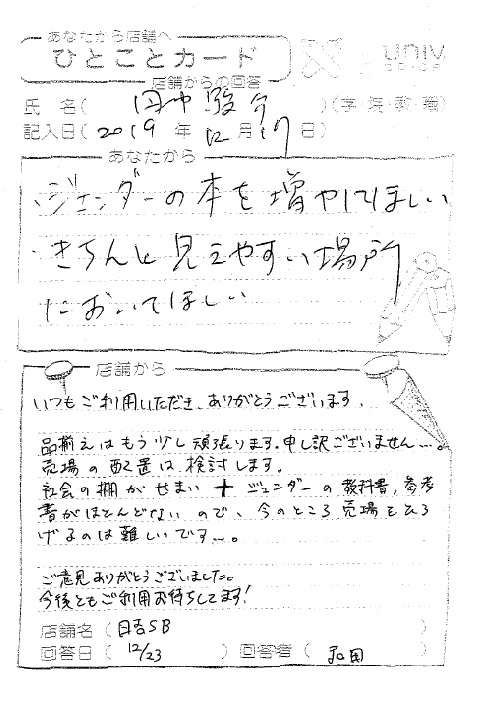 あなたから店舗へ
ひとことカード
店舗からの回答
UNIV.
CO-OP
氏 名( 田中 駿介 )(学・院・教・職)
記入日( 2019 年 12 月 17 日)
あなたから
・ジェンダーの本を増やしてほしい
・きちんと見えやすい場所
においてほしい
店舗から
いつもご利用いただき、ありがとうございます。
品揃えはもう少し頑張ります。申し訳ございません…。
売場の配置は検討します。
社会の棚がせまい + ジェンダーの教科書、参考
書がほとんどないので、今のところ売場をひろ
げるのは難しいです…。
ご意見ありがとうございました。
今後ともご利用お待ちしてます!
店舗名( 日吉SB )
回答日( 12/23 ) 回答者( 和田 )